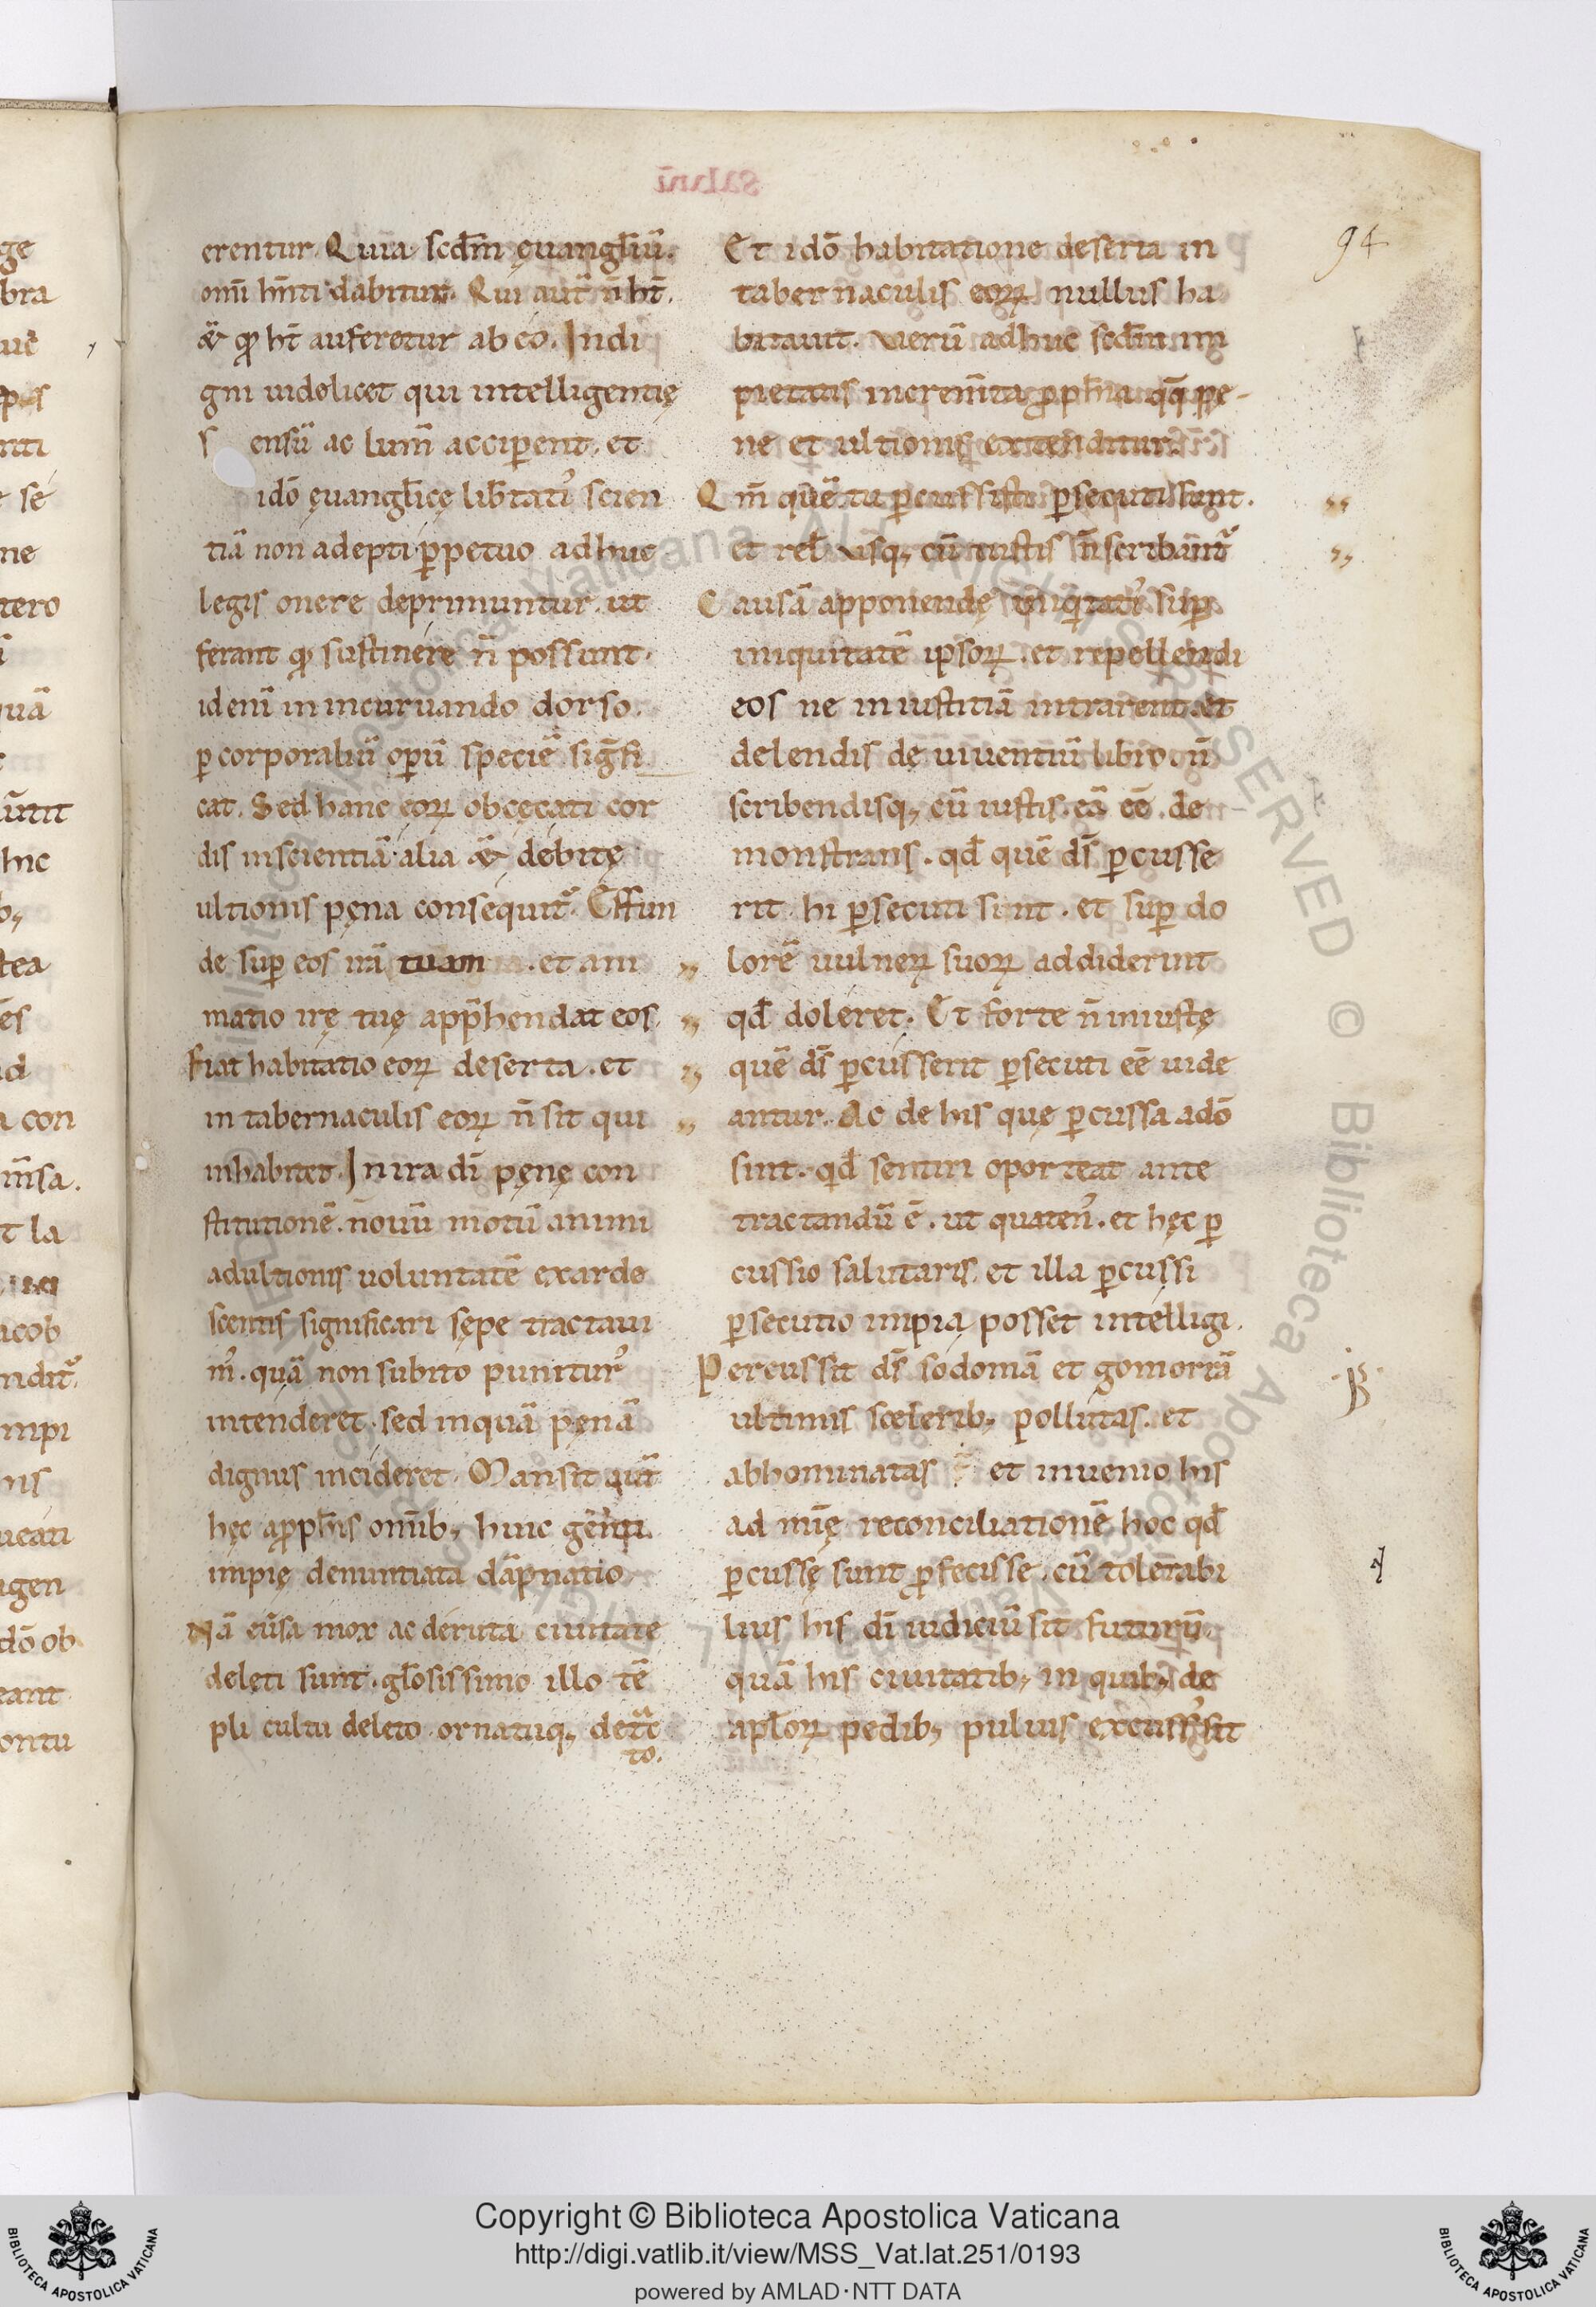 94
erentur. Quia scdm̄ ęuangliū.
om̄i hn̄ti dabitur. Qui aut̄ n̄ ht̄.
& qđ ht̄ auferetur ab eo. Indi
gni uidelicet qui intelligentię
s ensū ac lum̄ acciperent. et
idō ęuanglicę lib̄tatis scien
tiā non adepti ꝑpetuo adhuc
legis onere deprimuntur. ut
ferant qđ sustinere n̄ possunt.
id enī in incuruando dorso.
ꝑ corporaliū opū speciē sign̄fi
cat. Sed hanc eoꝝ obcęcati cor
dis inscientiā alia & debitę
ultionis pęna consequit̄. Effun
de suꝑ eos irā tuam . et ani „
matio irę tuę appͬhendat eos. „
fiat habitatio eoꝝ deserta. et „
in tabernaculis eoꝝ n̄ sit qui „
inhabitet. In ira dī pęnę con
stitutionē. nouū motū animi
ad ultionis uoluntatē exarde
scentis significari sępe tractaui
mꝰ. quā non subito puniturꝰ
intenderet. sed in quā pęnā
dignus incideret. Mansit aut̄
hęc a ꝓph̄is om̄ib; huic genti
impię denuntiata dāpnatio.
Nā euersa mox ac deruta ciuitate
deleti sunt. glosissimo illo tē
pli cultu deleto ornatuq; detrac
to.
Et idō habitatione deserta in
tabernaculis eoꝝ nullus ha
bitauit. uerū adhuc scdm̄ im
pietatis increm̄ta ꝓph̄ia qq̄ pę-
ne et ultionis extenditur.
Qm̄ quē tu ꝑcussisti ꝑsecuti sunt. „
et rel̄ usq; cū iustis n̄ scribant̄ „
Causā apponendę iniq̇tatis suꝑ
iniquitatē ipsoꝝ. et repellendi
eos ne in iustitiā intrarent. et
delendis de uiuentiū libro. n̄
scribendisq; cū iustis. eā eē. de
monstrans. qđ quē ds̄ ꝑcusse
rit. hi ꝑsecuti sint. et suꝑ do
lorē uulneꝝ suoꝝ addiderint
qđ doleret. Et forte n̄ iniustę
quē ds̄ ꝑcusserit ꝑsecuti eē uide
antur. Ac de his quę ꝑcussa a dō
sint. qđ sentiri oporteat ante
tractandū ē. ut quatenꝰ. et hęc ꝑ
cussio salutaris. et illa ꝑcussi
ꝑsecutio impia posset intelligi.
Percussit ds̄ sodomā et gomorrā
ultimis sceleribꝫ pollutas. et
abhominatas et inuenio his
ad mīę reconciliationē hoc qđ
ꝑcussę sunt ꝓfecisse. cū tolerabi
lius his dī iudiciū sit futurū.
quā his ciuitatib; in quib; de
aploꝝ pedib; puluis excussꝰ sit
Copyright © Biblioteca Apostolica Vaticana
http://digi.vatlib.it/view/MSS_Vat.lat.251/0193
powered by AMLAD·NTT DATA